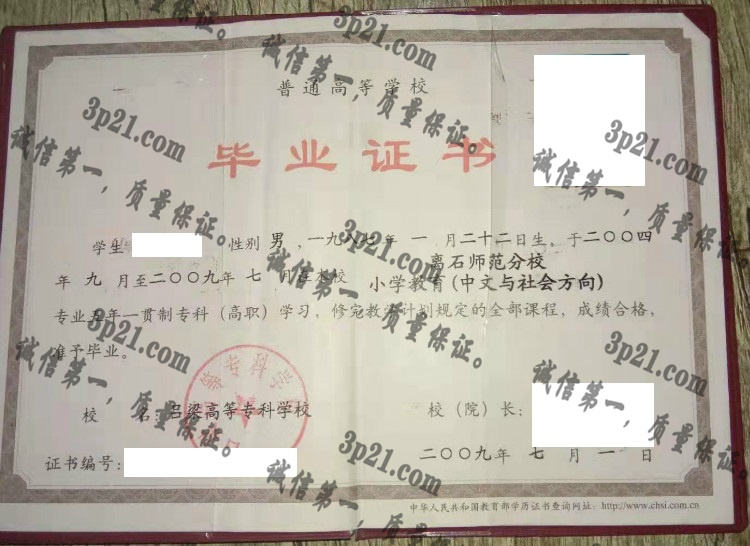 普通高等学校
毕业证书
学生 性别 男，一九八七年 一 月二十二日生，于二〇〇四
年 九 月至二〇〇九年 七 月在本校 离石师范分校
小学教育(中文与社会方向)
专业五年一贯制专科（高职）学习，修完教学计划规定的全部课程，成绩合格，
准予毕业。
校 名：吕梁高等专科学校
校（院）长：
证书编号：
二〇〇九年 七 月 一 日
中华人民共和国教育部学历证书查询网址：http://www.chsi.com.cn
3p21.com
诚信第一，质量保证。
3p21.com
诚信第一，质量保证。
3p21.com
诚信第一，质量保证。
3p21.com
诚信第一，质量保证。
3p21.com
诚信第一，质量保证。
3p21.com
诚信第一，质量保证。
3p21.com
诚信第一，质量保证。